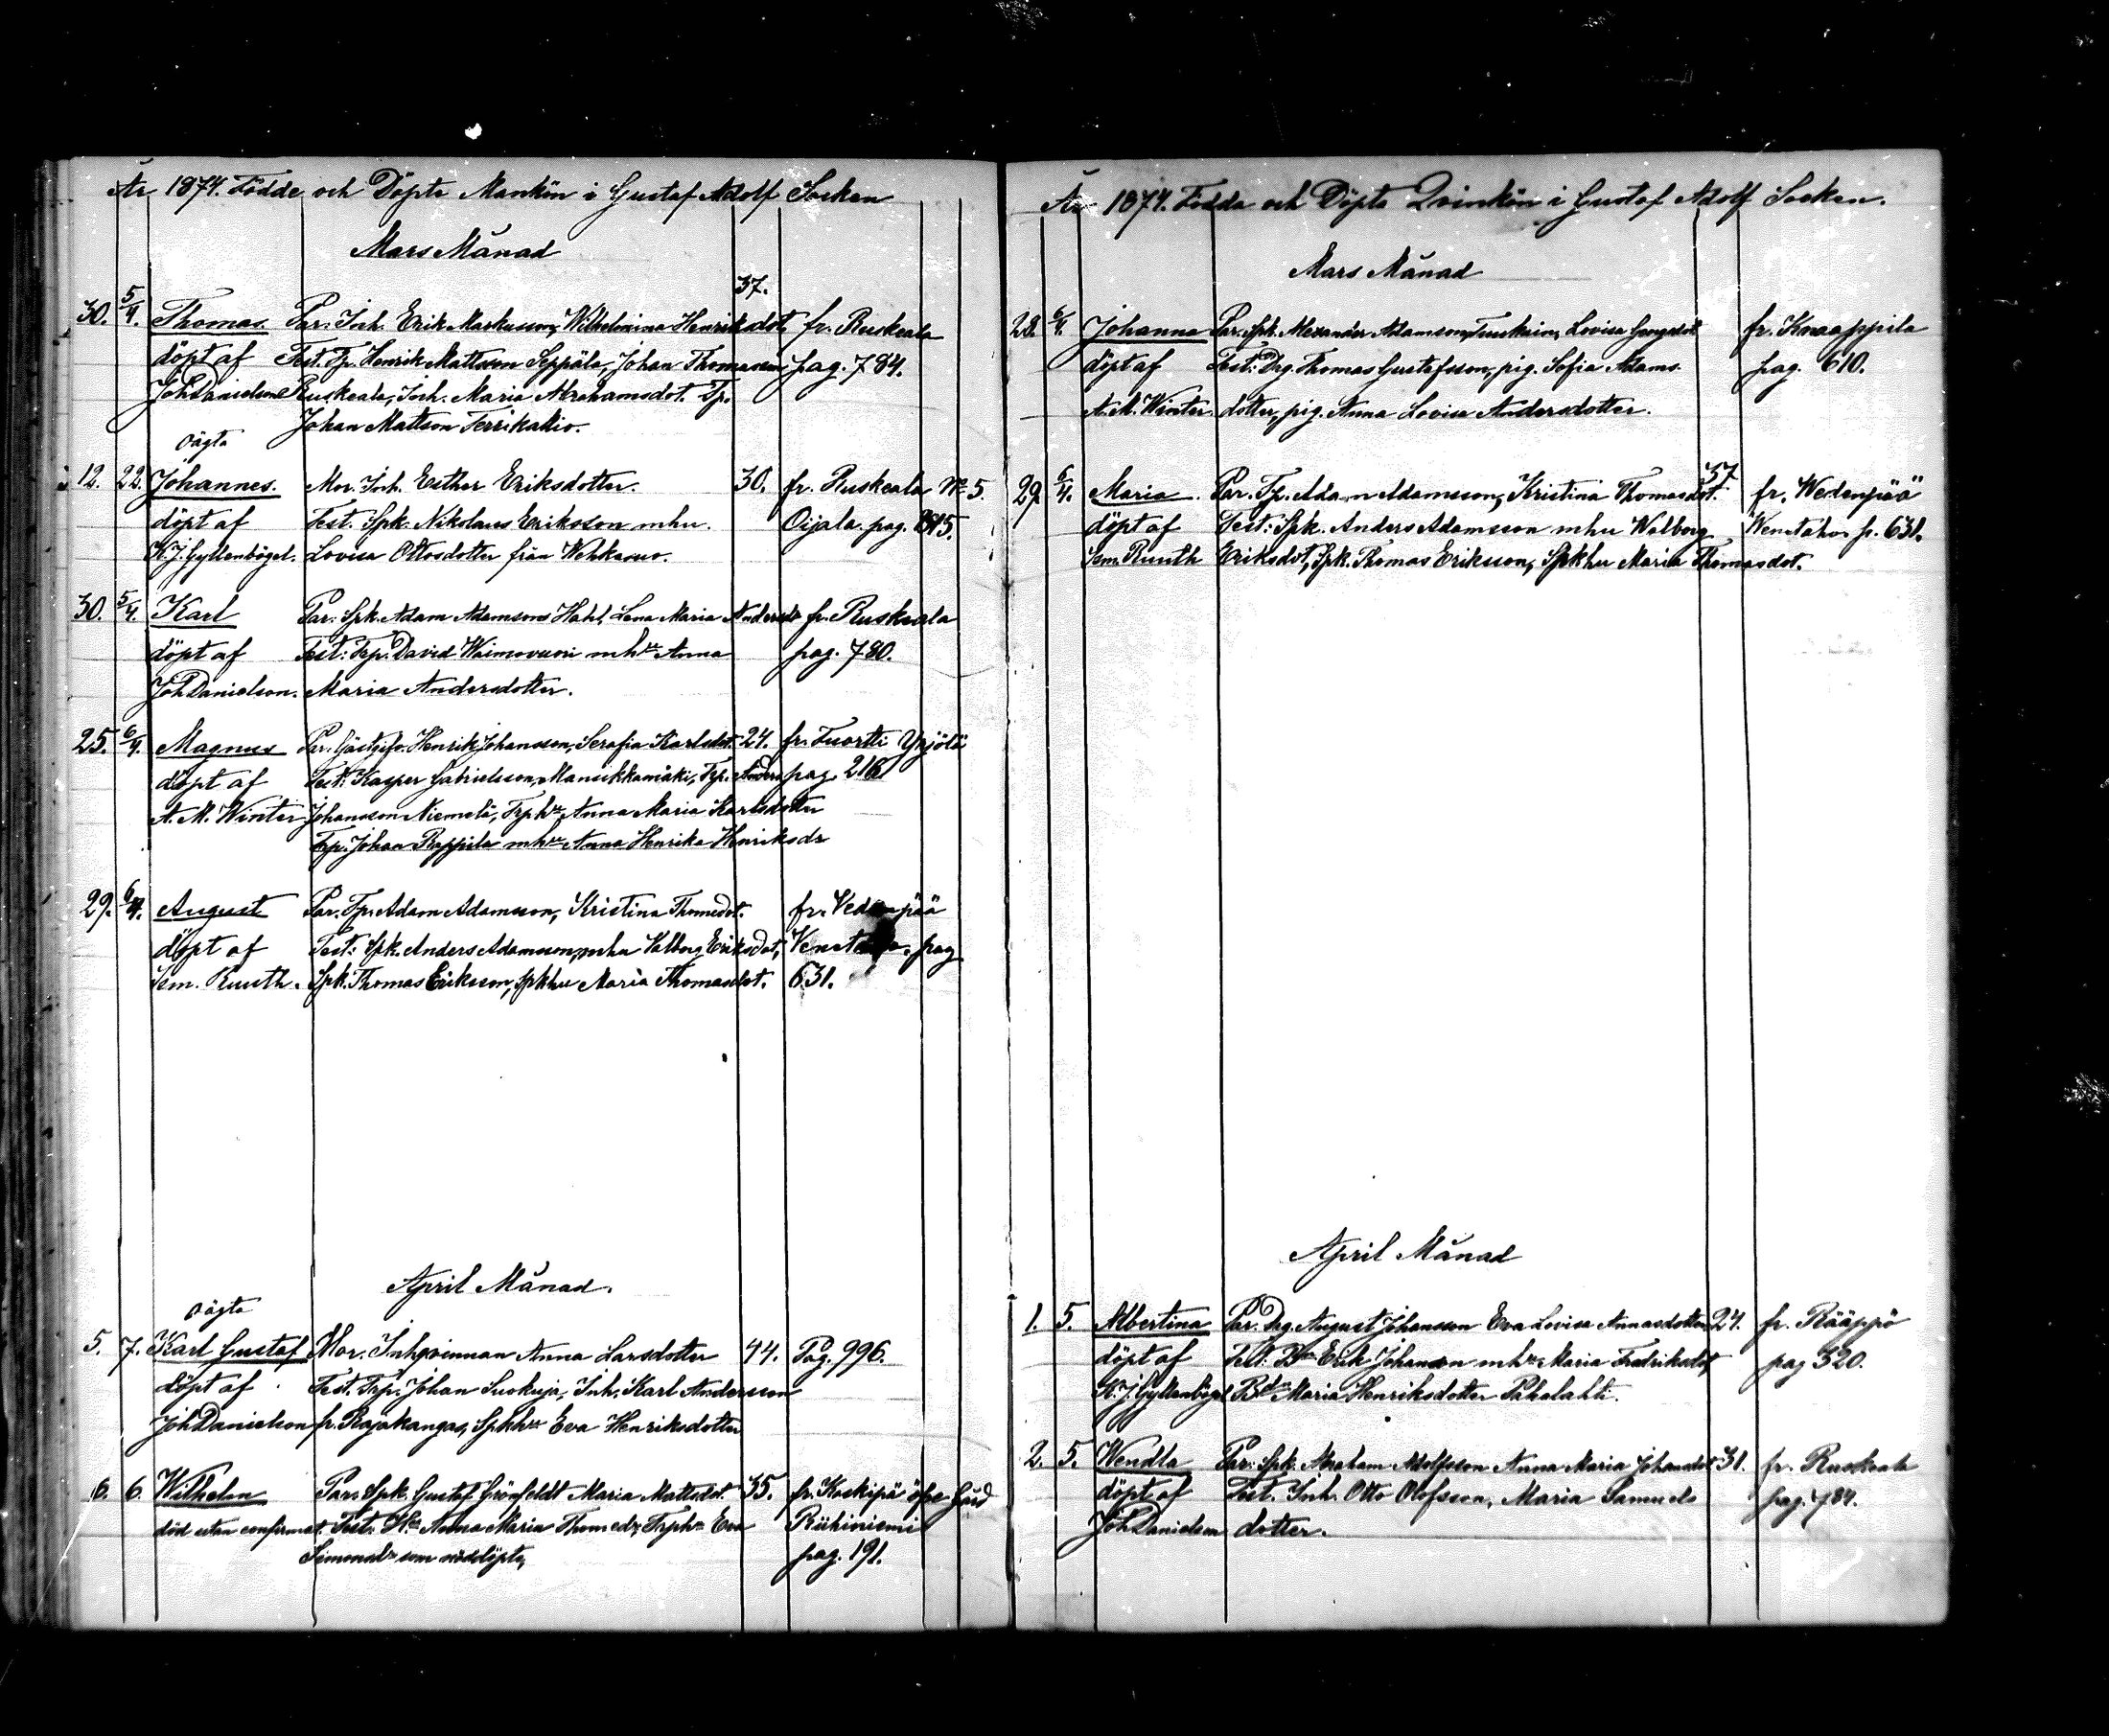 År 1874. Födde och Döpte Mankön i Gustaf Adolf Socken
Mars Månad
37.
30. 5/4. Thomas. Par. Inh. Erik Markusson, Wilhelmina Henriksdot, fr. Ruskeala
döpt af Test. Tp. Henrik Mattsson Seppälä, Johan Thomasson pag. 784.
Joh Danielson Ruskeala, Inh. Maria Abrahamsdot. Tp.
Johan Mattson
oägta
12. 22. Johannes. Mor. Inh. Esther Eriksdotter. 30. fr. Ruskeala No 5.
döpt af Test. Spk. Nikolaus Eriksson mhu. Oijala. pag.
K. J. Gyllenbögel. Lovisa Ottosdotter från
30. 5/4. Karl Par. Spk. Adam Adamsons Lena Maria Andersdr fr. Ruskeala
döpt af Test: Trp. David mhu Anna pag. 780.
Joh Danielson. Maria Andersdotter.
25. 6/4. Magnus Par. Gästgifv. Henrik Johansson, Serafia Karlsdot. 24. fr. Yrjölä
döpt af Test: Kasper Gabrielsson, Mansikkamäki, Trp. Anders pag. 216
A. M. Winter Johansson Niemelä, Trphu Anna Maria Karlsdotter
Trp. Johan Rappila mhu Anna Henrika Henriksdr
29. 6/4. August Par. Tp. Adam Adamsson, Kristina Thomedot. fr. Vedenpää
döpt af Test: Spk. Anders Adamsson, mhu Valborg Eriksdot, pag
Sem. Ruuth. Spk. Thomas Eriksson, Spkhu Maria Thomasdot. 631.
April Månad.
oägta
5. 7. Karl Gustaf Mor. Inhqvinnan Anna Larsdotter 44. Pag. 996.
döpt af Test. Trp. Johan Suokuja, Inh. Karl Andersson
Joh Danielson fr. Rajakangas, Spkhu Eva Henriksdotter
6. 6. Wilhelm Par. Spk. Gustaf Grönfeldt Maria Mattsdot. 35. fr. Koskipä
död utan confirmat. Test: Anna Maria Thomedr, Trphu Eva Riihiniemi
Simonsdr som nöddöpte, pag. 191.
År 1874. Födda och Döpta Qvinkön i Gustaf Adolf Socken.
Mars Månad
28. 6/4. Johanna Par. Spk. Alexander Adamsson, Lovisa fr. Knaappila
döpt af Test: Drg. Thomas Gustafsson, pig. Sofia Adams- pag. 610.
A. M. Winter. dotter, pig. Anna Lovisa Andersdotter.
37
29. 6/4. Maria Par. Tp. Adam Adamsson, Kristina Thomasdot. fr. Wedenpää
döpt af Test: Spk. Anders Adamsson mhu Walborg p. 631.
Sem. Ruuth Eriksdot, Spk. Thomas Eriksson, Spkhu Maria Thomasdot.
April Månad
1. 5. Albertina Par. Drg. August Johansson Eva Lovisa Annasdotter 24. fr. Rääppö
döpt af Test: Erik Johanson mhu Maria Fredriksdot, pag 320.
K. J. Gyllenbögel Maria Henriksdotter Pahalahti.
2. 5. Wendla Par: Spk. Abraham Adolfsson Anna Maria Johansdot 31. fr. Ruskeala
döpt af Test. Inh. Otto Olofsson, Maria Samuels pag. 784.
Joh Danielson dotter.